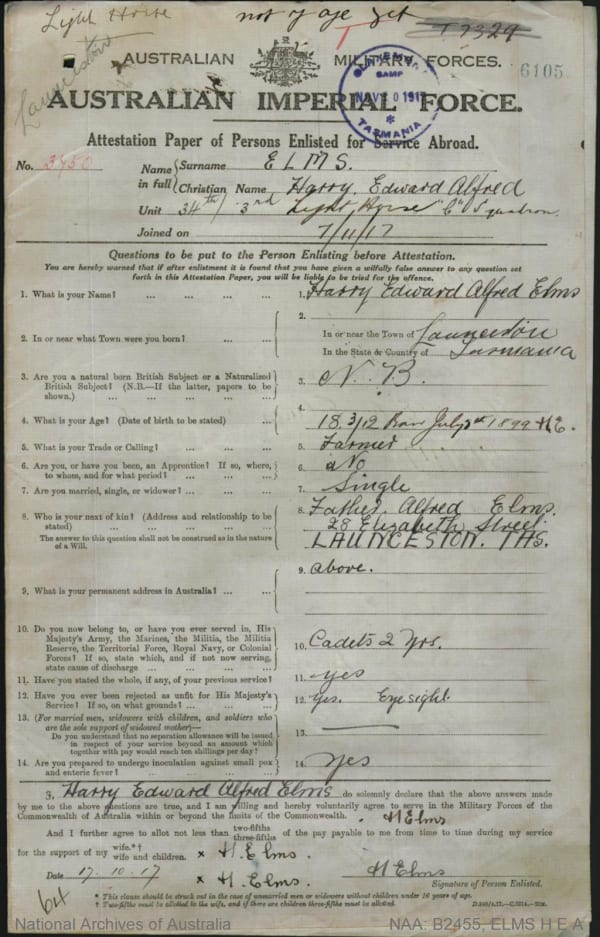 Light Horse
not of age yet
Launceston
AUSTRALIAN MILITARY FORCES.
6105
AUSTRALIAN IMPERIAL FORCE.
CAMP
NOV 20 1917
TASMANIA
Attestation Paper of Persons Enlisted for Service Abroad.
No. 3750
Name in full
Surname ELMS.
Christian Name Harry Edward Alfred
Unit 34th/ 3rd Light Horse "C" Squadron
Joined on 7/11/17
Questions to be put to the Person Enlisting before Attestation.
You are hereby warned that if after enlistment it is found that you have given a wilfully false answer to any question set
forth in this Attestation Paper, you will be liable to be tried for the offence.
1. What is your Name? ... ... ... ... 1. Harry Edward Alfred Elms
2. In or near what Town were you born? ... ... 2. In or near the Town of Launceston
In the State & Country of Tasmania
3. Are you a natural born British Subject or a Naturalised
British Subject? (N.B.—If the latter, papers to be
shown.) ... ... ... ... 3. N. B.
4. What is your Age? (Date of birth to be stated) ... 4. 18 3/12 Born July 1899 HE.
5. What is your Trade or Calling? ... ... ... 5. Farmer
6. Are you, or have you been, an Apprentice? If so, where,
to whom, and for what period? ... ... ... 6. No
7. Are you married, single, or widower? ... ... ... 7. Single
8. Who is your next of kin? (Address and relationship to be
stated) ... ... ... ... 8. Father. Alfred Elms.
28 Elizabeth Street
LAUNCESTON. TAS.
The answer to this question shall not be construed as in the nature
of a Will.
9. What is your permanent address in Australia? ... ... 9. above.
10. Do you now belong to, or have you ever served in, His
Majesty's Army, the Marines, the Militia, the Militia
Reserve, the Territorial Force, Royal Navy, or Colonial
Forces? If so, state which, and if not now serving,
state cause of discharge ... ... ... ... 10. Cadets 2 yrs.
11. Have you stated the whole, if any, of your previous service? 11. yes
12. Have you ever been rejected as unfit for His Majesty's
Service? If so, on what grounds? ... ... ... 12. Yes. Eyesight.
13. (For married men, widowers with children, and soldiers who
are the sole support of widowed mother)—
Do you understand that no separation allowance will be issued
in respect of your service beyond an amount which
together with pay would reach ten shillings per day? 13.
14. Are you prepared to undergo inoculation against small pox
and enteric fever? ... ... ... ... 14. Yes
I, Harry Edward Alfred Elms do solemnly declare that the above answers made
by me to the above questions are true, and I am willing and hereby voluntarily agree to serve in the Military Forces of the
Commonwealth of Australia within or beyond the limits of the Commonwealth. H Elms
And I further agree to allot not less than two-fifths three-fifths of the pay payable to me from time to time during my service
for the support of my wife.*† wife and children. x H. Elms.
Date 17.10.17 x H. Elms. H Elms
Signature of Person Enlisted.
* This clause should be struck out in the case of unmarried men or widowers without children under 16 years of age.
† Two-fifths must be allotted to the wife, and if there are children three-fifths must be allotted.
64
National Archives of Australia
NAA: B2455, ELMS H E A